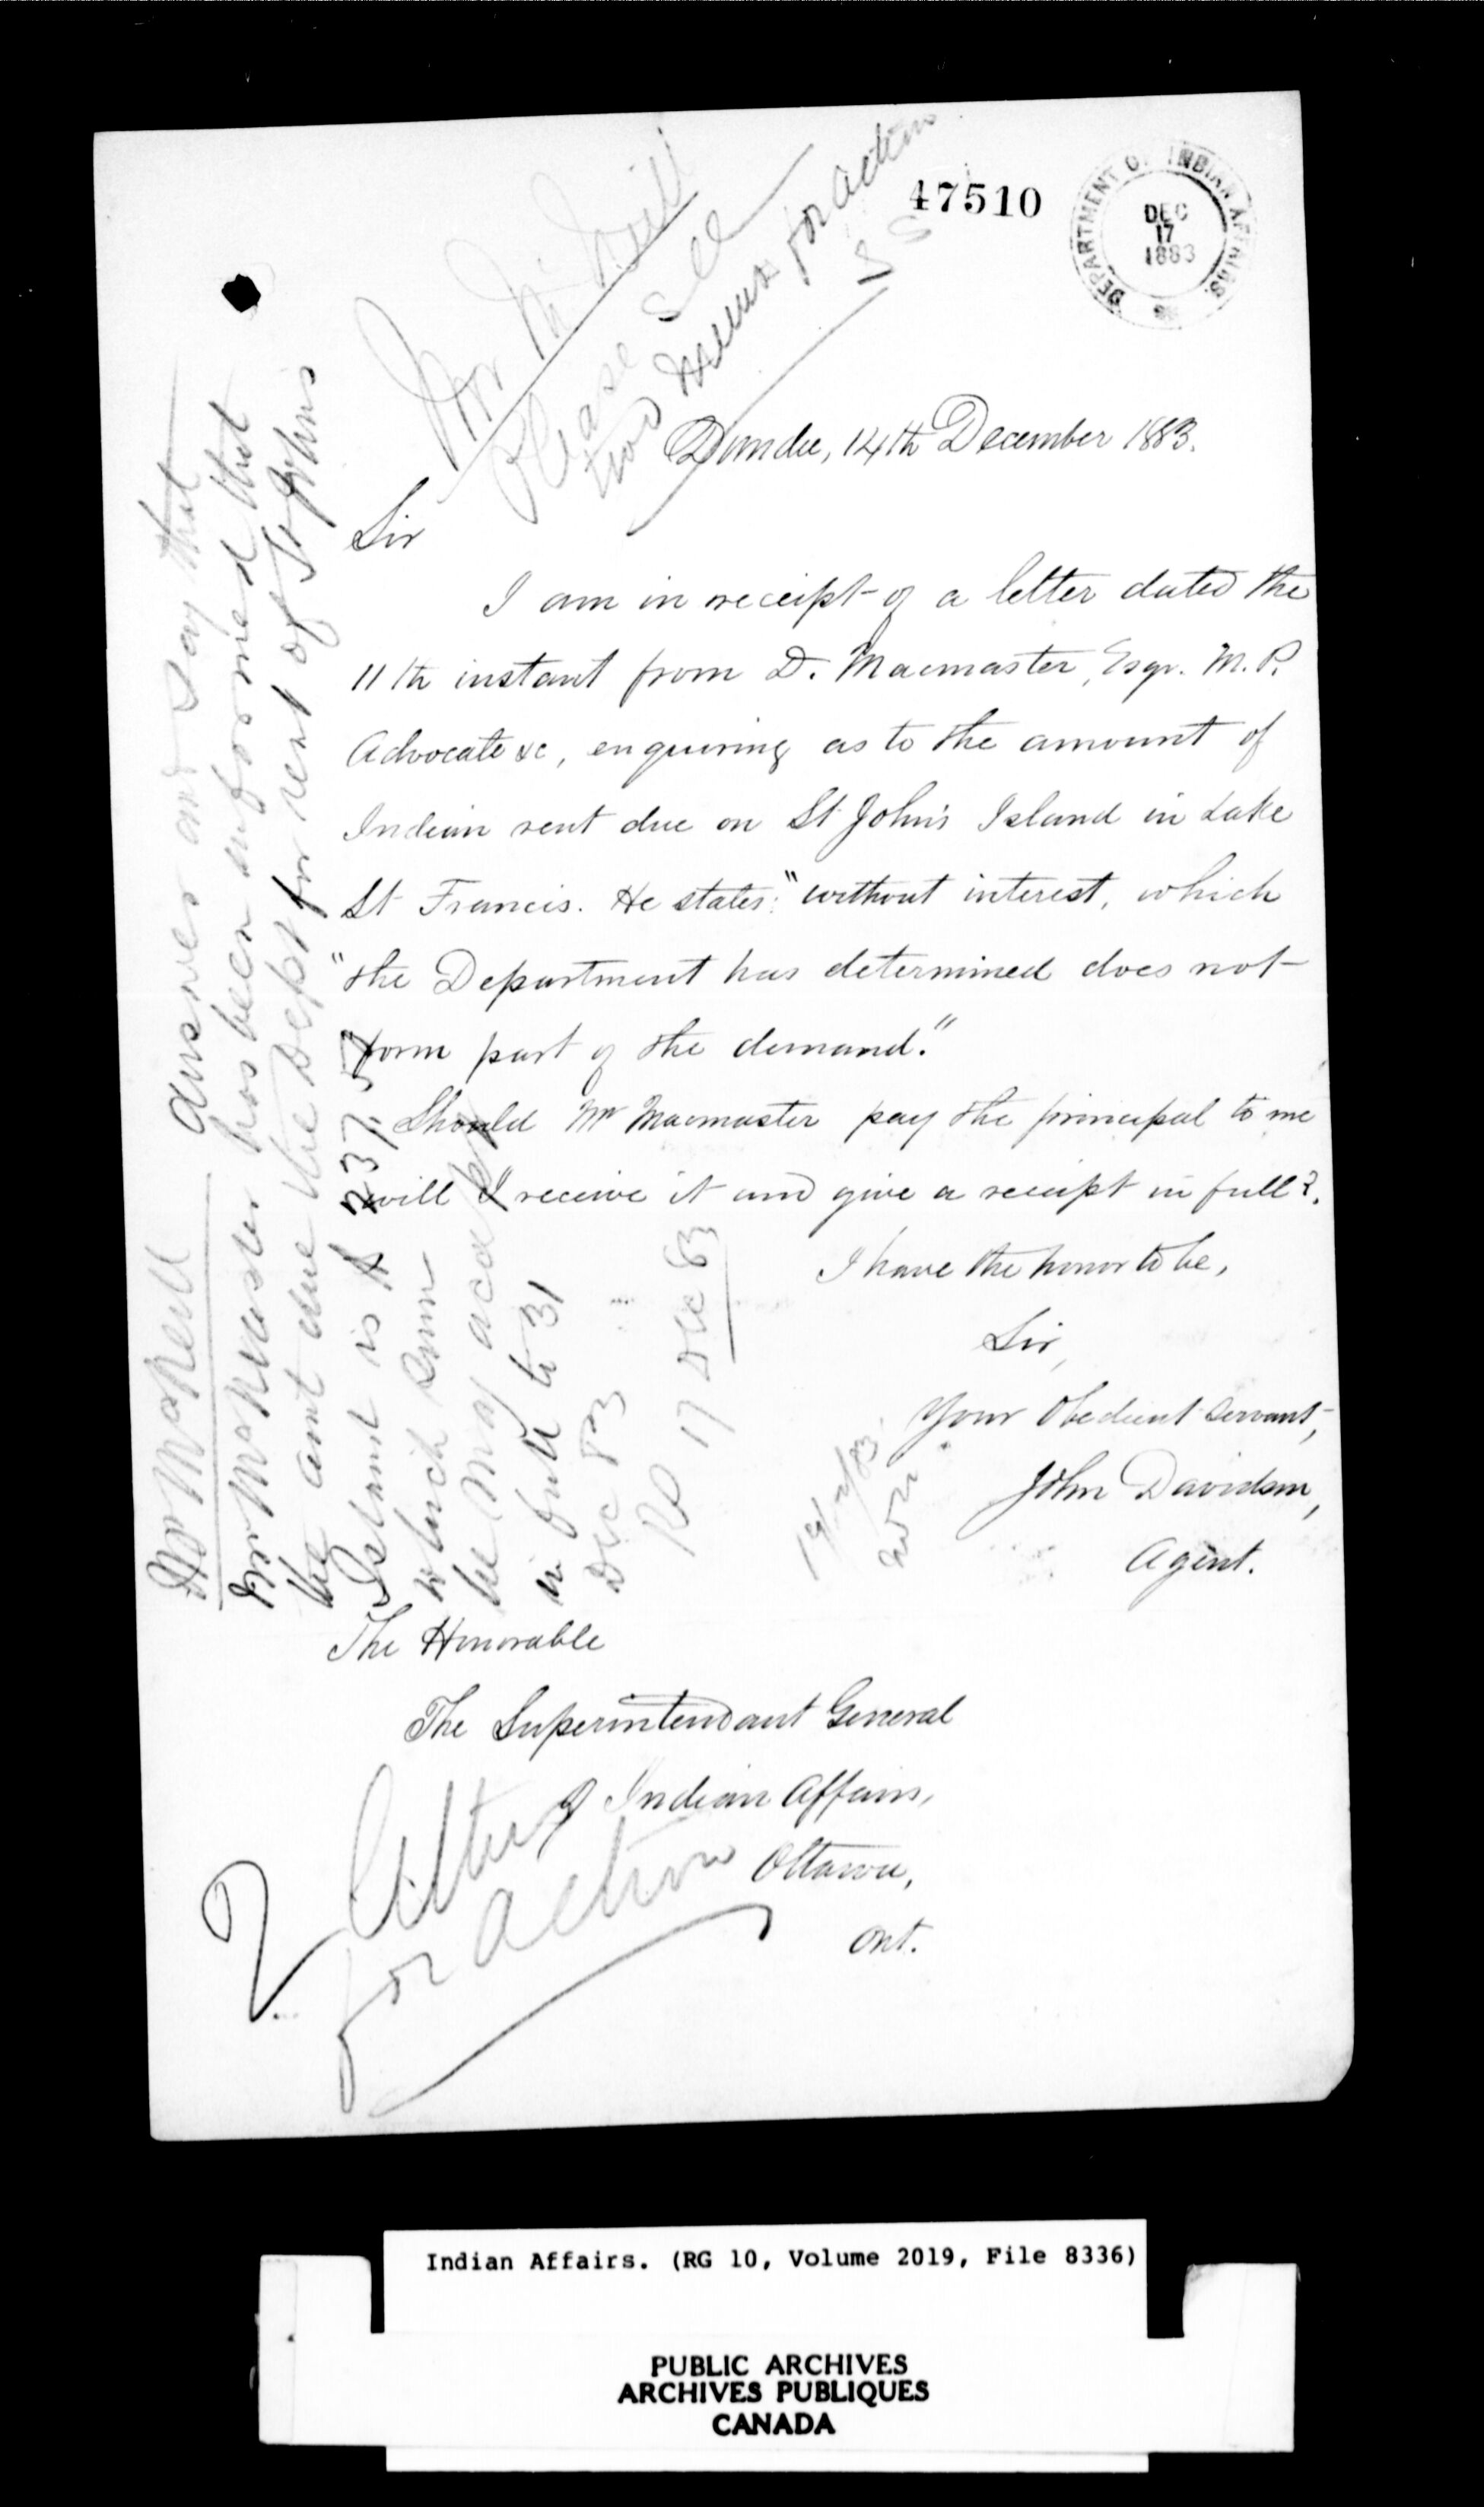 47510
DEPARTMENT OF INDIAN AFFAIRS.
DEC
17
1883
Mr McNeill
Please see
two memos for action
Dundee, 14th December 1883.
Sir
I am in receipt of a letter dated the
11th instant from D. Macmaster, Esqr. M.P.
Advocate &c, enquiring as to the amount of
Indian rent due on St John's Island in Lake
St Francis. He states: "without interest, which
"the Department has determined does not
form part of the demand."
Should Mr Macmaster pay the principal to me
will I receive it and give a receipt in full?.
I have the honor to be,
Sir,
Your Obedient Servant,
John Davidson,
Agent.
The Honorable
The Superintendant General
of Indian Affairs,
Ottawa,
Ont.
Mr McNeill
answer and say that
Mr McMaster has been informed that
the amt due the Dept for rent of St Johns
Island is $ 237.
which sum
he may accept
in full to 31
Dec 83
17 Dec 83
19/12/83
2 Letters
for action
Indian Affairs. (RG 10, Volume 2019, File 8336)
PUBLIC ARCHIVES
ARCHIVES PUBLIQUES
CANADA